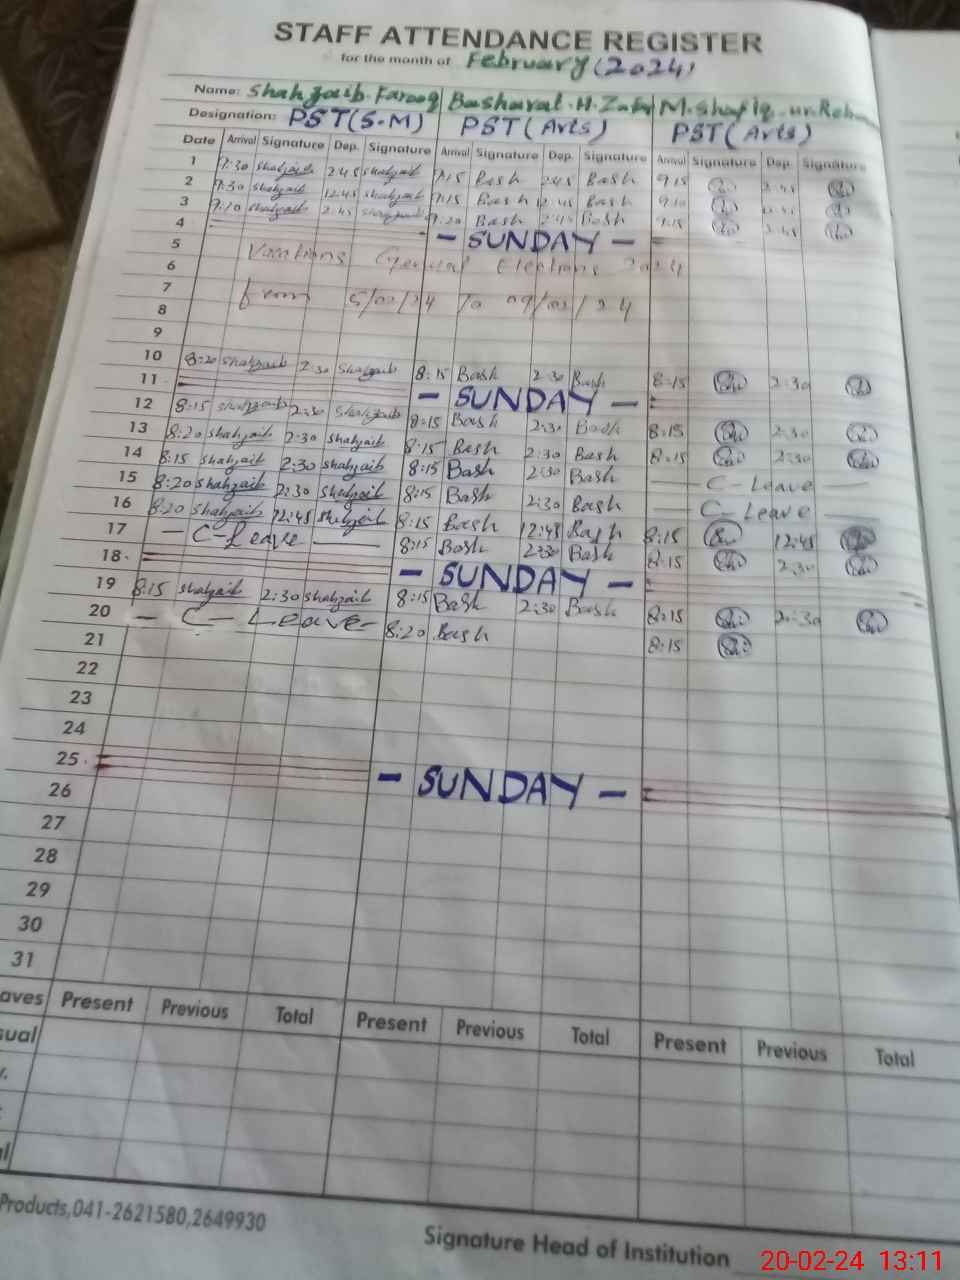 STAFF ATTENDANCE REGISTER
for the month of February (2024)
Name: Shahzaib.Farooq Basharat.H.Zafar M.Shafiq.ur.Rehman
Designation: PST(S.M) PST (Arts) PST (Arts)
Date Arrival Signature Dep. Signature Arrival Signature Dep. Signature Arrival Signature Dep. Signature
1 9:30 Shahzaib 2:45 Shahzaib 9:15 Bash 2:45 Bash 9:15 2:45
2 9:30 Shahzaib 12:45 Shahzaib 9:15 Bash 12:45 Bash 9:10
3 9:10 Shahzaib 2:45 Shahzaib 9:20 Bash 2:45 Bash 9:15 2:45
4 - SUNDAY -
5 Vacations General Elections 2024
6
7 from 5/02/24 To 09/02/24
8
9
10 8:20 Shahzaib 2:30 Shahzaib 8:15 Bash 2:30 Bash 8:15 2:30
11 - SUNDAY -
12 8:15 Shahzaib 2:30 Shahzaib 8:15 Bash 2:30 Bash 8:15 2:30
13 8:20 Shahzaib 2:30 Shahzaib 8:15 Bash 2:30 Bash 8:15 2:30
14 8:15 Shahzaib 2:30 Shahzaib 8:15 Bash 2:30 Bash C-Leave
15 8:20 Shahzaib 2:30 Shahzaib 8:15 Bash 2:30 Bash C-Leave
16 8:20 Shahzaib 12:45 Shahzaib 8:15 Bash 12:45 Bash 8:15 12:45
17 - C-Leave 8:15 Bash 2:30 Bash 8:15 2:30
18 - SUNDAY -
19 8:15 Shahzaib 2:30 Shahzaib 8:15 Bash 2:30 Bash 8:15 2:30
20 - C-Leave - 8:20 Bash 8:15
21
22
23
24
25 - SUNDAY -
26
27
28
29
30
31
aves Present Previous Total Present Previous Total Present Previous Total
sual
Products,041-2621580,2649930
Signature Head of Institution
20-02-24 13:11